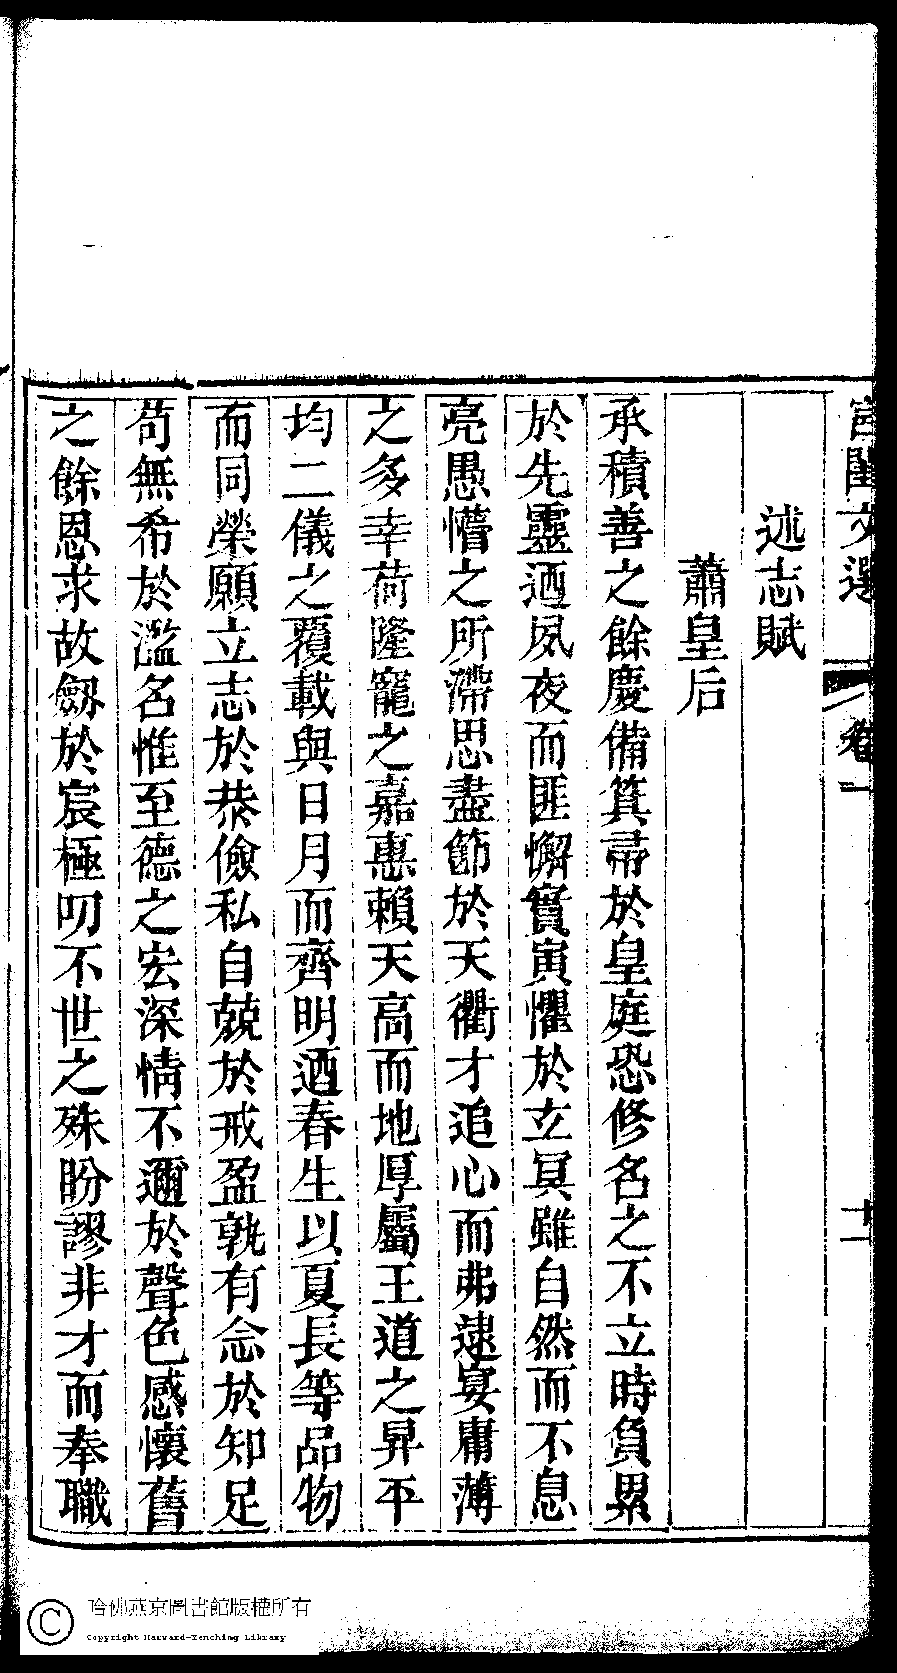 宮閨文選 卷一 十一
述志賦
蕭皇后
承積善之餘慶備箕帚於皇庭恐修名之不立時負累
於先靈迺夙夜而匪懈實寅懼於玄冥雖自然而不息
亮愚懵之所滯思盡節於天衢才追心而弗逮寔庸薄
之多幸荷隆寵之嘉惠賴天高而地厚屬王道之昇平
均二儀之覆載與日月而齊明迺春生以夏長等品物
而同榮願立志於恭儉私自兢於戒盈孰有念於知足
苟無希於濫名惟至德之宏深情不邇於聲色感懷舊
之餘恩求故劔於宸極叨不世之殊盼謬非才而奉職
哈佛燕京圖書館版權所有
Copyright Harvard-Yenching Library